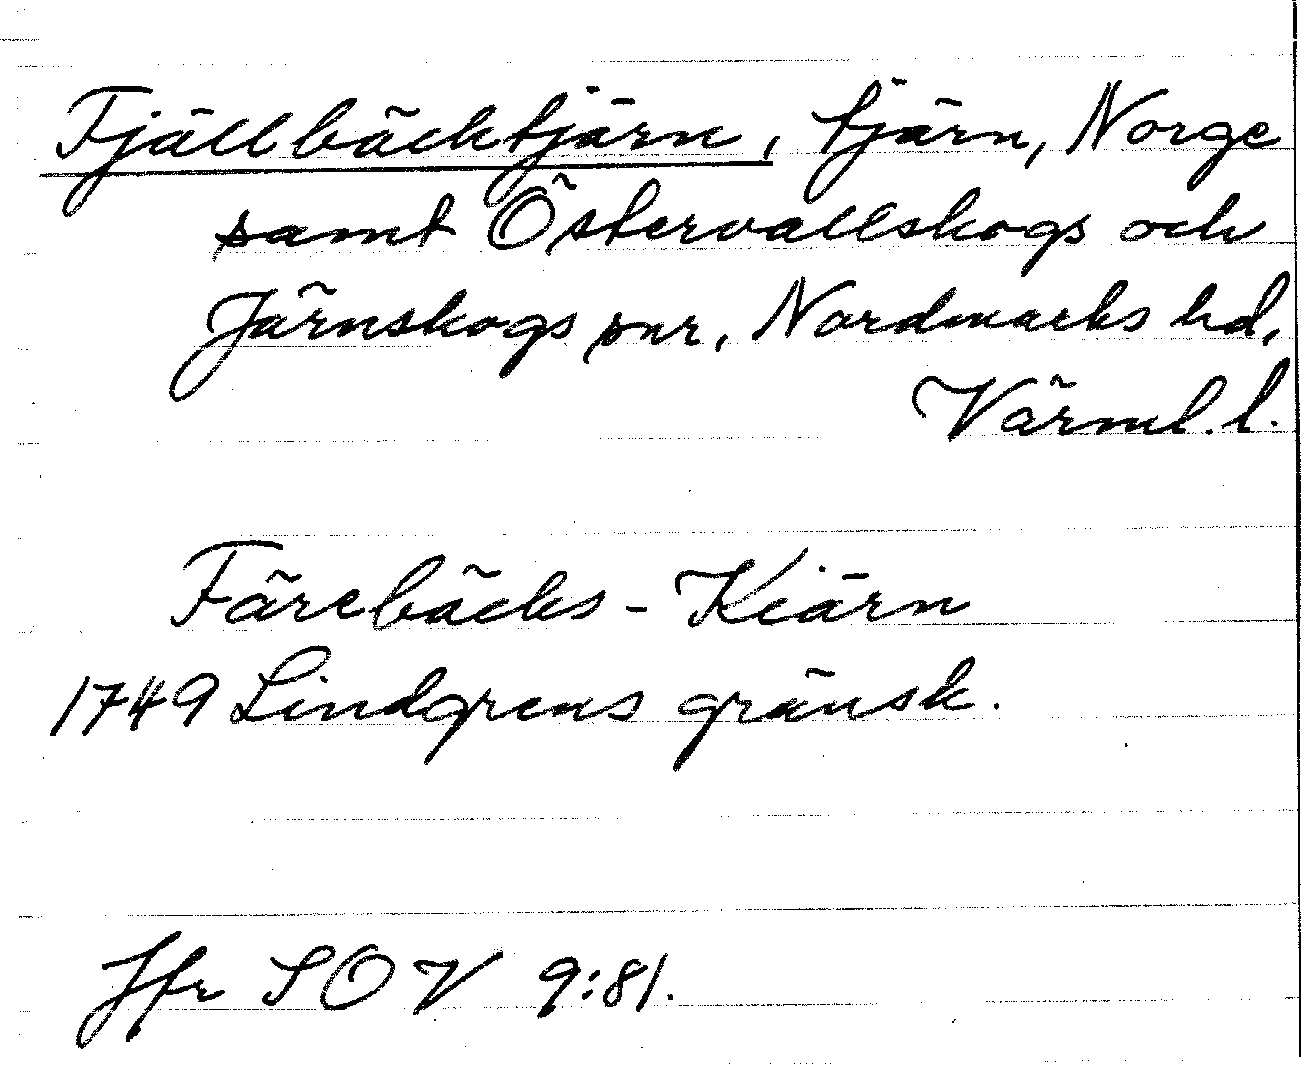 Fjällbäcktjärn, tjärn, Norge
samt Östervallskogs och
Järnskogs snr, Nordmarks hd,
Värml. l.
Färebäcks-Kiärn
1749 Lindgrens gränsk.
Jfr SOV 9:81.